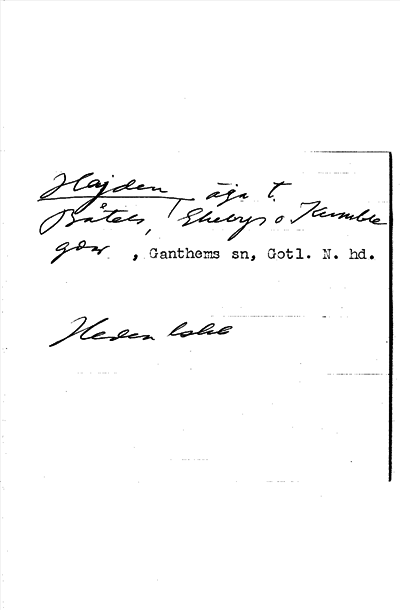 Hajden äga t.
Båtels, Ekebys o Kumble
gdar , Ganthems sn, Gotl. N. hd.
Heden lskb